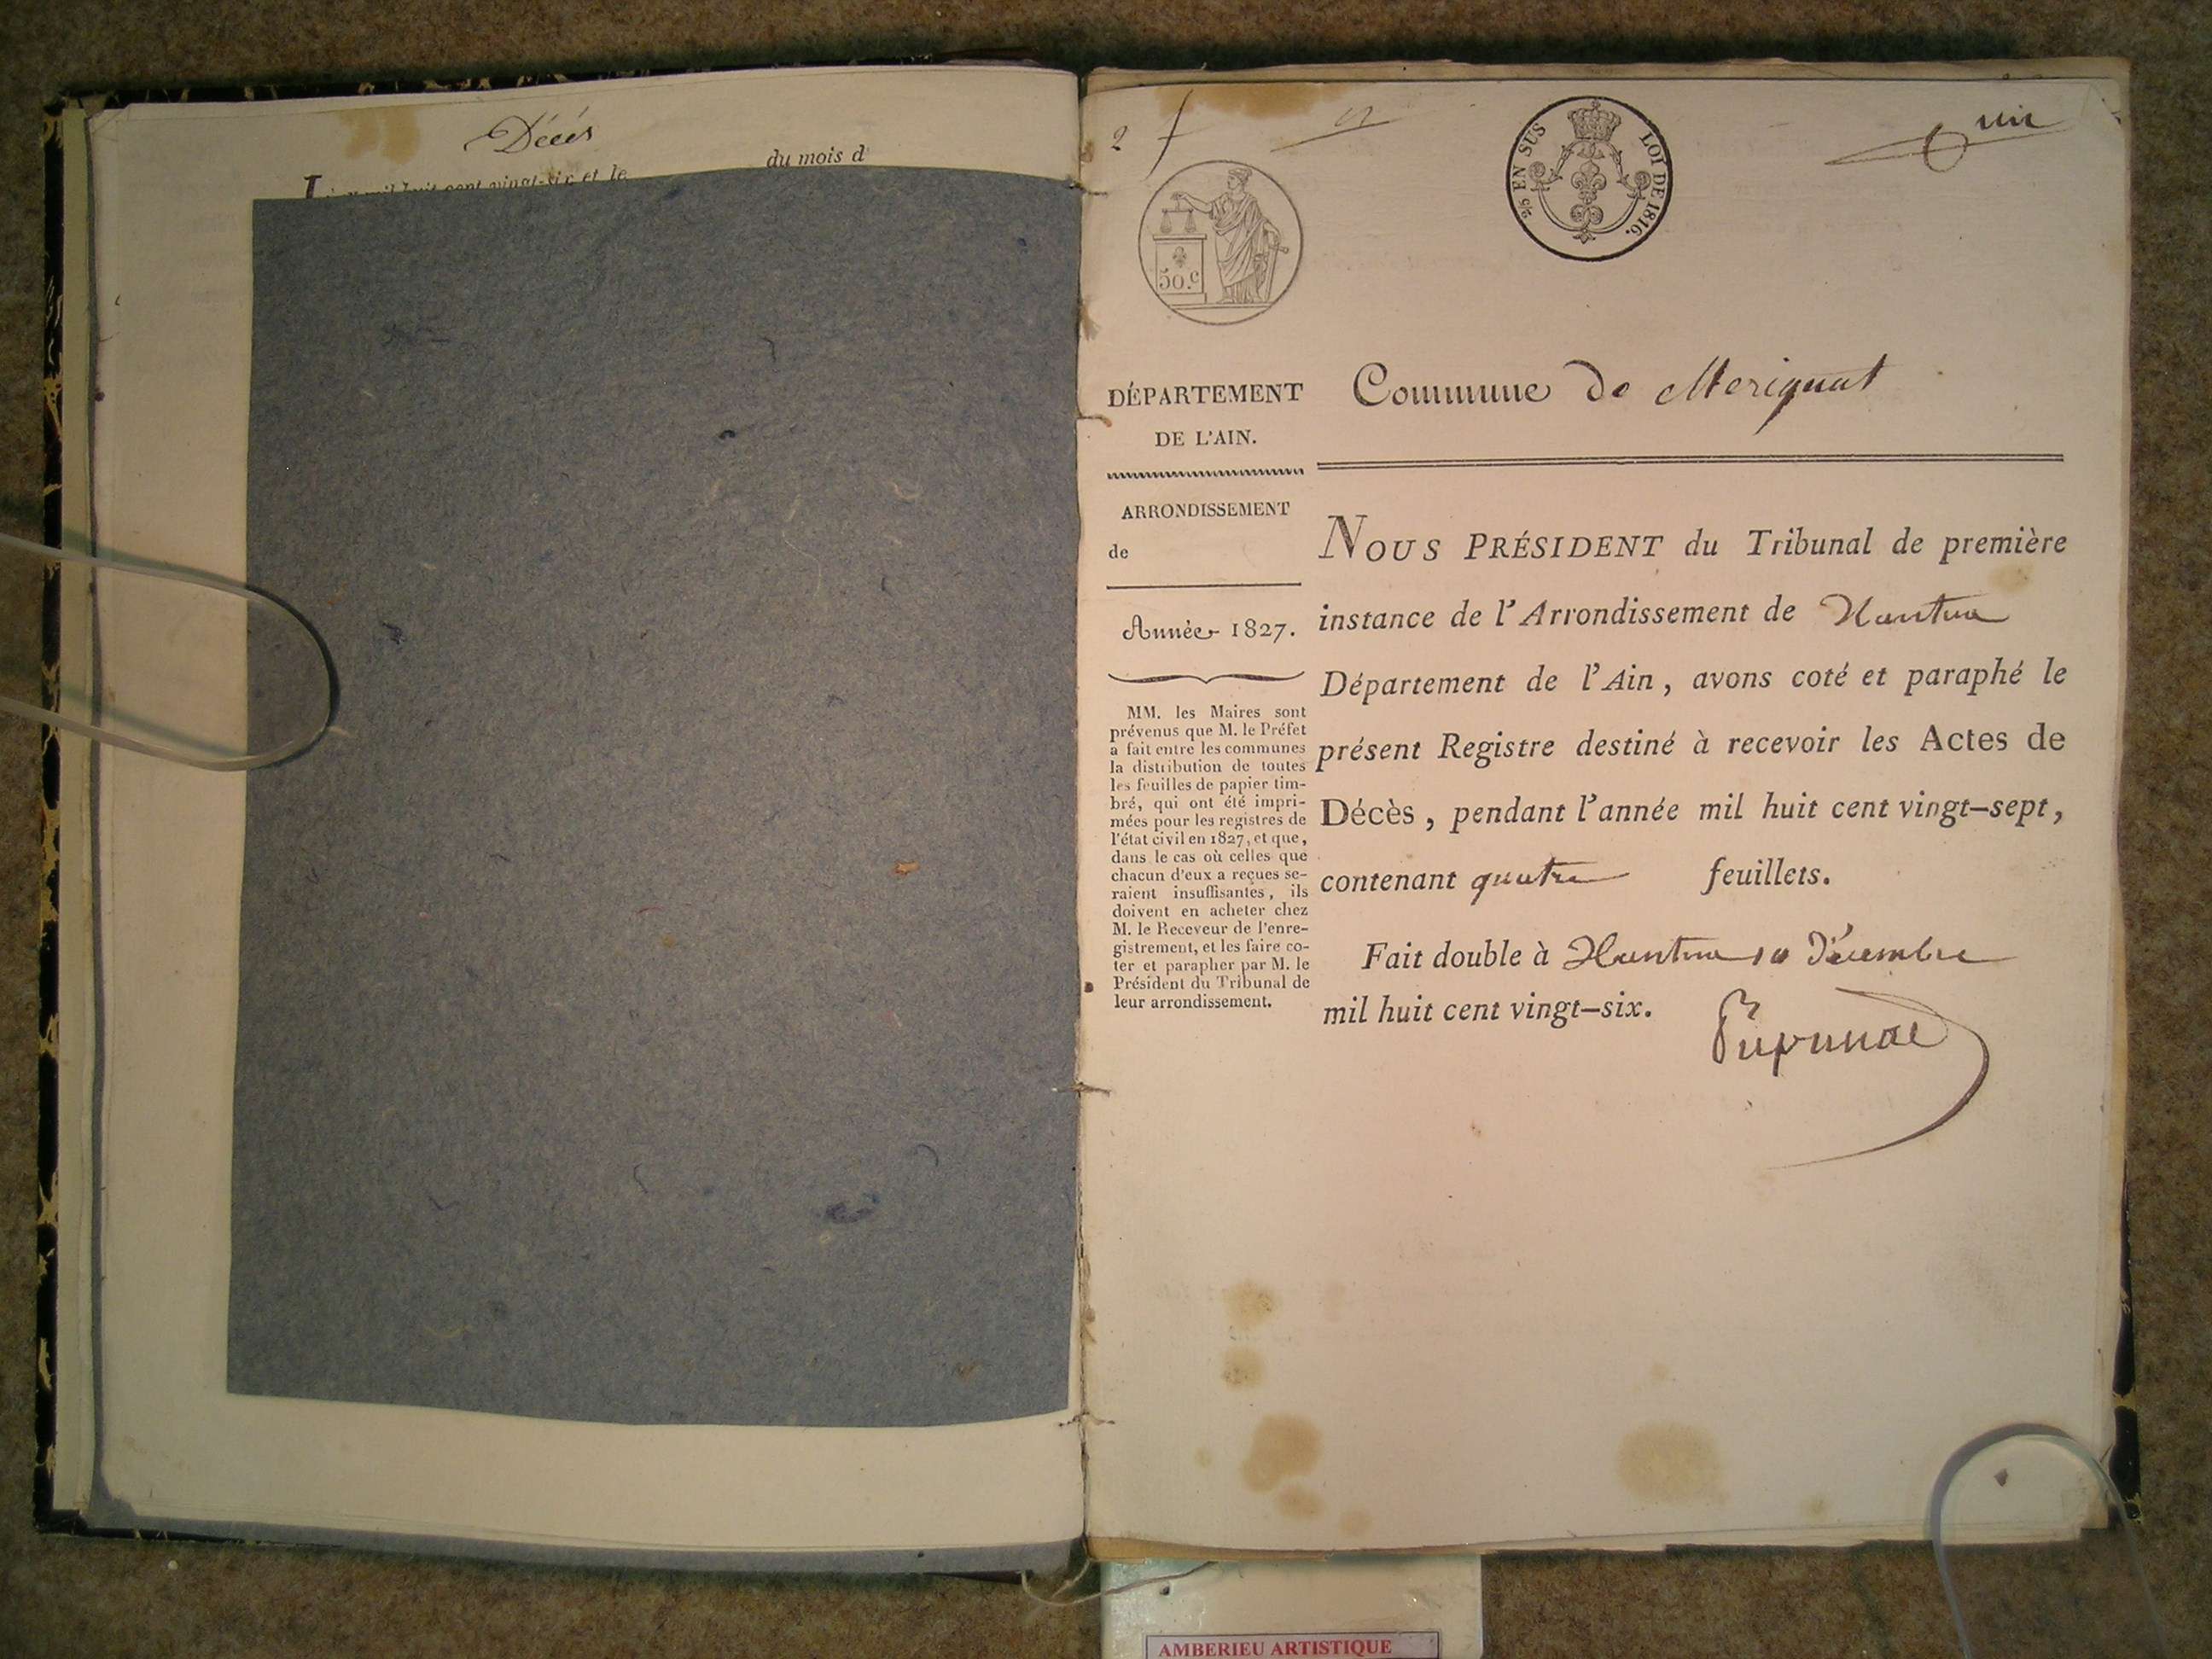 Décés
du mois d
mil huit cent vingt-six et le
2
un
2/5 EN SUS LOI DE 1816.
50.c
DÉPARTEMENT
DE L'AIN.
ARRONDISSEMENT
de
Année 1827.
MM. les Maires sont
prévenus que M. le Préfet
a fait entre les communes
la distribution de toutes
les feuilles de papier tim-
bré, qui ont été impri-
mées pour les registres de
l'état civil en 1827, et que,
dans le cas où celles que
chacun d'eux a reçues se-
raient insuffisantes, ils
doivent en acheter chez
M. le Receveur de l'enre-
gistrement, et les faire co-
ter et parapher par M. le
Président du Tribunal de
leur arrondissement.
Commune de Merignat
NOUS PRÉSIDENT du Tribunal de première
instance de l'Arrondissement de Nantua
Département de l'Ain, avons coté et paraphé le
présent Registre destiné à recevoir les Actes de
Décès, pendant l'année mil huit cent vingt-sept,
contenant quatre feuillets.
Fait double à Nantua 10 Décembre
mil huit cent vingt-six.
AMBERIEU ARTISTIQUE